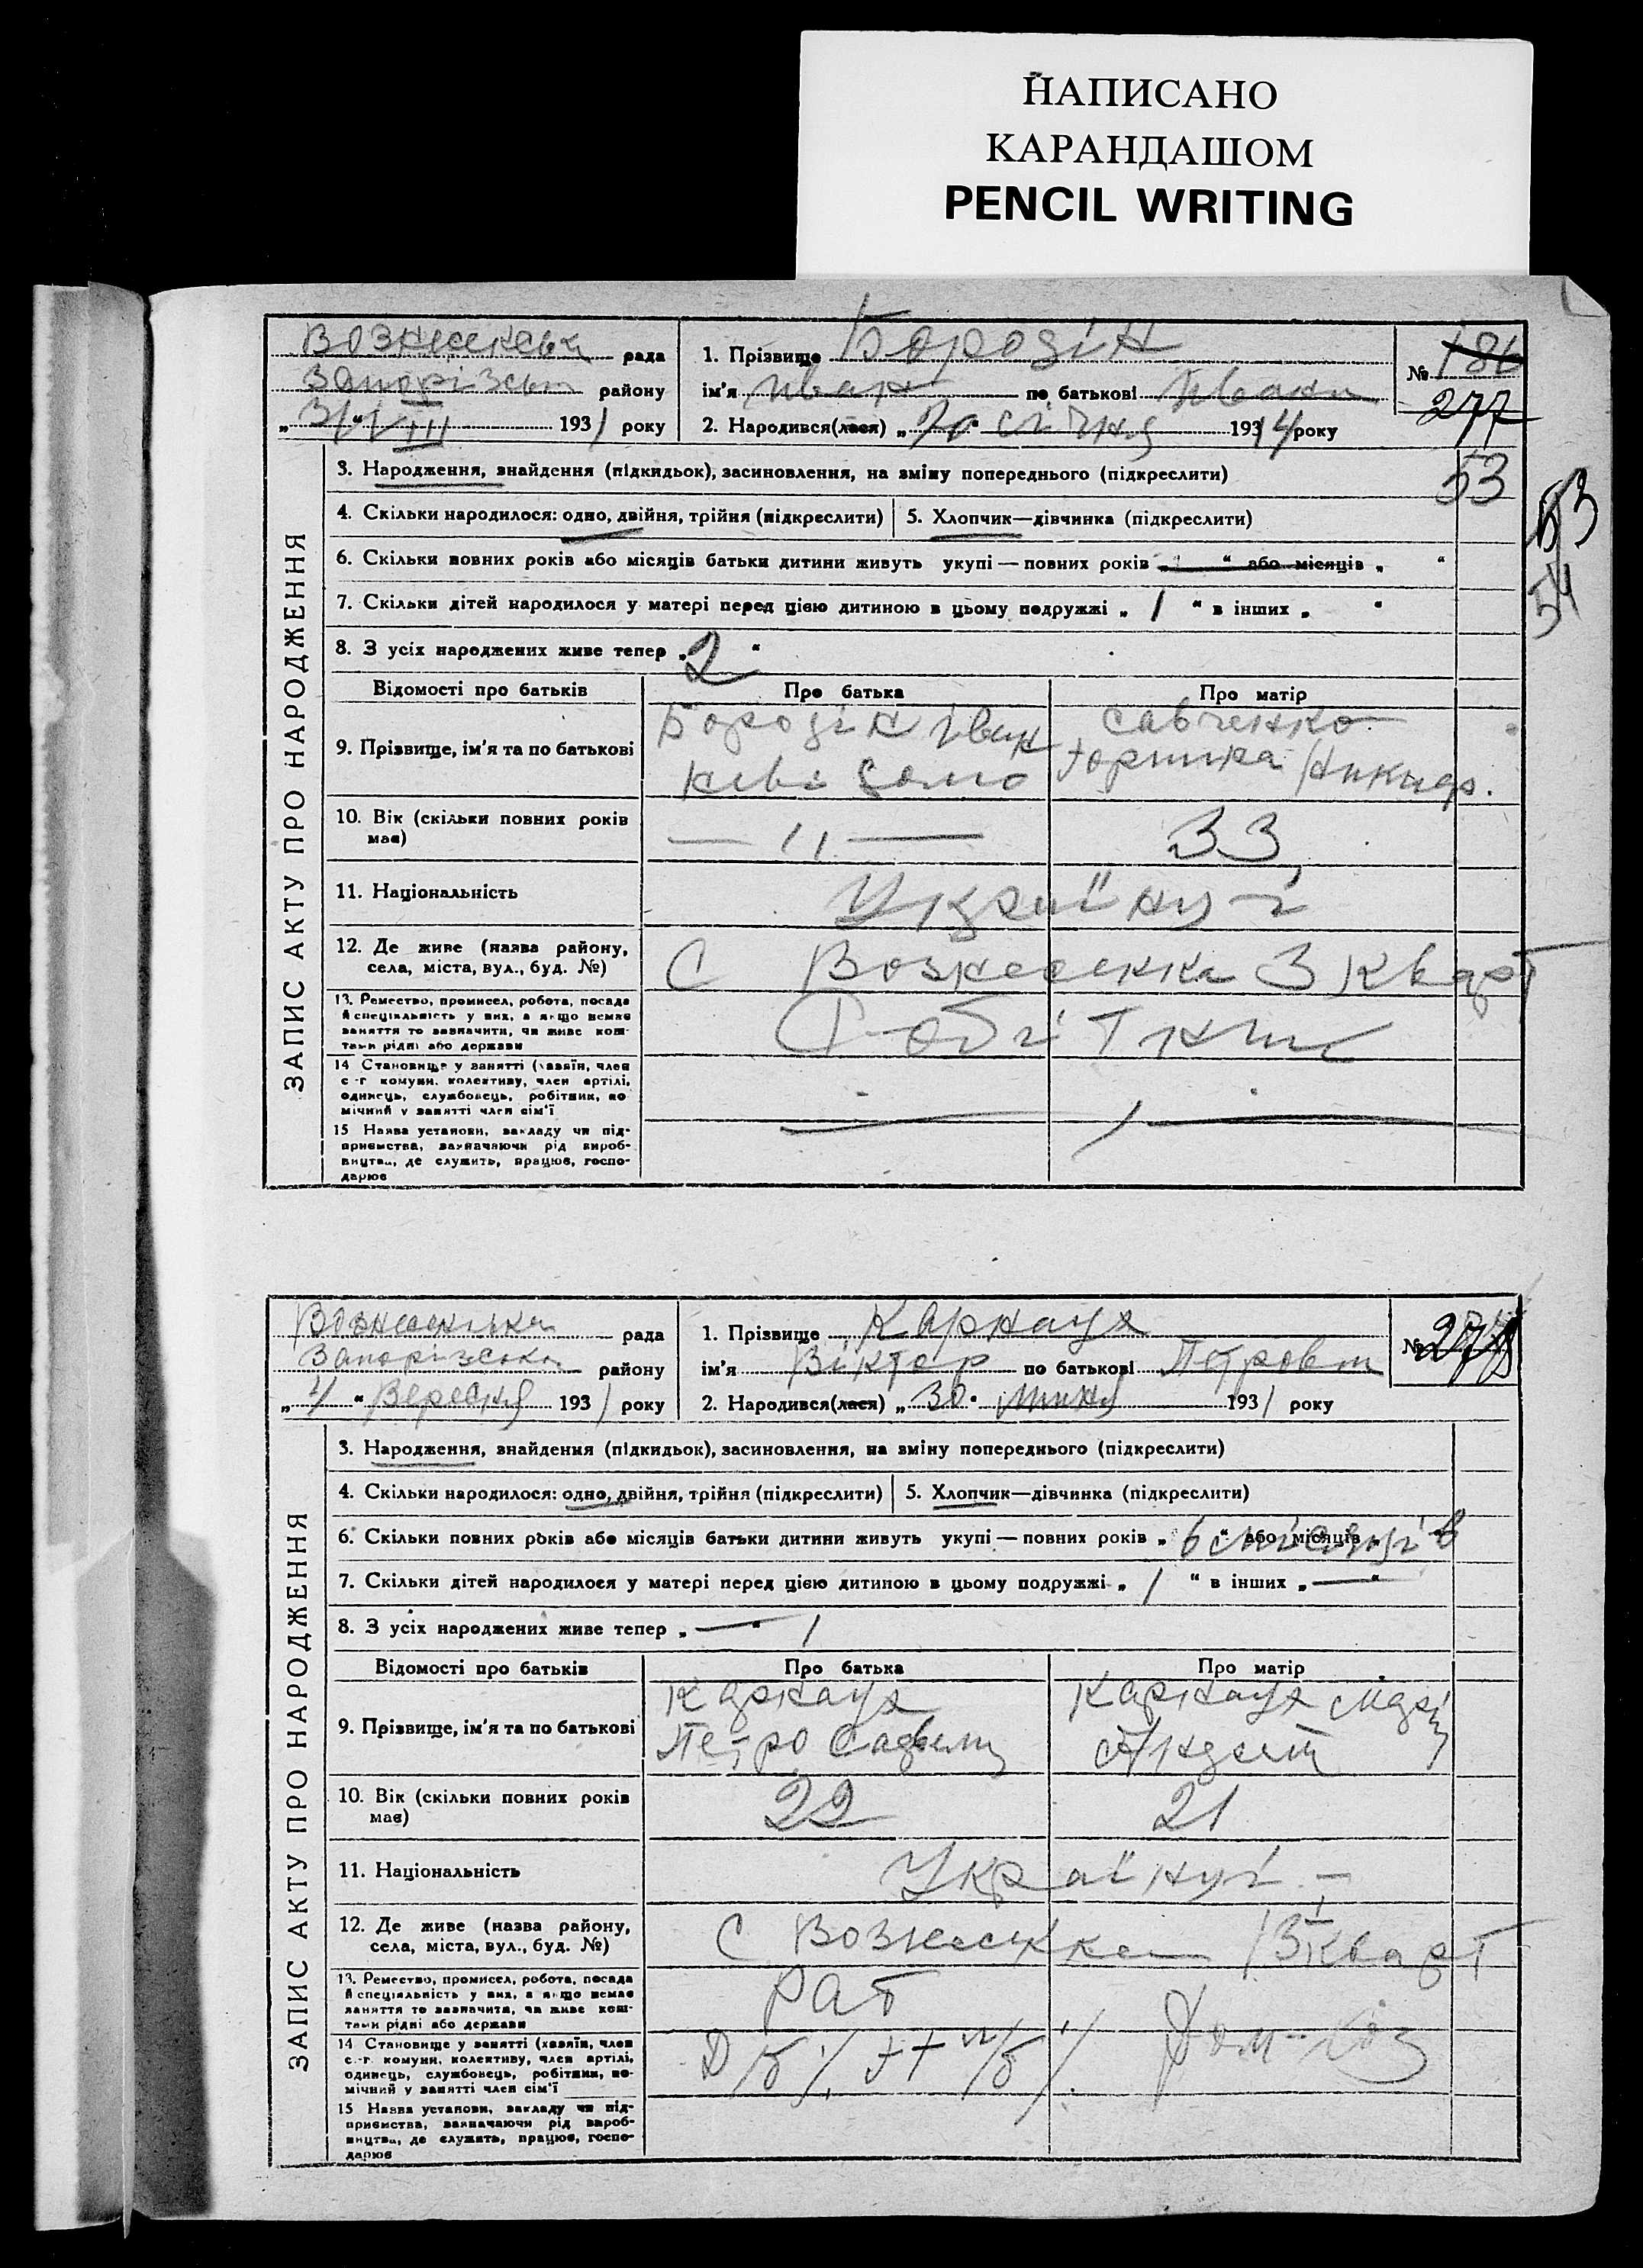 НАПИСАНО
КАРАНДАШОМ
PENCIL WRITING
рада
району
„31“ VIII 1931 року
1. Прізвище Бородін
ім'я Иван по батькові Ивани
2. Народився(лася) „ “ січня 1914 року
№ 186
277
ЗАПИС АКТУ ПРО НАРОДЖЕННЯ
3. Народження, знайдення (підкидьок), засиновлення, на зміну попереднього (підкреслити)
53
53
54
4. Скільки народилося: одно, двійня, трійня (підкреслити)
5. Хлопчик—дівчинка (підкреслити)
6. Скільки повних років або місяців батьки дитини живуть укупі — повних років „ “ або місяців „ “
7. Скільки дітей народилося у матері перед цією дитиною в цьому подружжі „ 1 “ в інших „ “
8. З усіх народжених живе тепер „2“
Відомості про батьків
Про батька
Про матір
9. Прізвище, ім'я та по батькові
Бородін Іван
Савченко
10. Вік (скільки повних років має)
— 〃 —
33
11. Національність
Україиці
12. Де живе (назва району, села, міста, вул., буд. №)
С Вознесенка 3 кварт
13. Ремество, промисел, робота, посада й спеціяльність у них, а якщо немає заняття то зазначити, чи живе коштами рідні або держави
14 Становище у занятті (хазяїн, член с.-г. комуни, колективу, член артілі, одинець, службовець, робітник, помічний у занятті член сім'ї
15 Назва установи, закладу чи підприємства, зазначаючи рід виробництва, де служить, працює, господарює
рада
району
„4“ Вересня 1931 року
1. Прізвище Карнаух
ім'я Віктор по батькові Петрович
2. Народився(лася) „30“ 1931 року
№ 278
ЗАПИС АКТУ ПРО НАРОДЖЕННЯ
3. Народження, знайдення (підкидьок), засиновлення, на зміну попереднього (підкреслити)
4. Скільки народилося: одно, двійня, трійня (підкреслити)
5. Хлопчик—дівчинка (підкреслити)
6. Скільки повних років або місяців батьки дитини живуть укупі — повних років „ “ або місяців 6 місяців
7. Скільки дітей народилося у матері перед цією дитиною в цьому подружжі „ 1 “ в інших „—“
8. З усіх народжених живе тепер „—“ 1
Відомості про батьків
Про батька
Про матір
9. Прізвище, ім'я та по батькові
Карнаух
Карнаух Марія
Петро
10. Вік (скільки повних років має)
22
21
11. Національність
Українці
12. Де живе (назва району, села, міста, вул., буд. №)
С Вознесенка 13 кварт
13. Ремество, промисел, робота, посада й спеціяльність у них, а якщо немає заняття то зазначити, чи живе коштами рідні або держави
Раб
14 Становище у занятті (хазяїн, член с.-г. комуни, колективу, член артілі, одинець, службовець, робітник, помічний у занятті член сім'ї
15 Назва установи, закладу чи підприємства, зазначаючи рід виробництва, де служить, працює, господарює